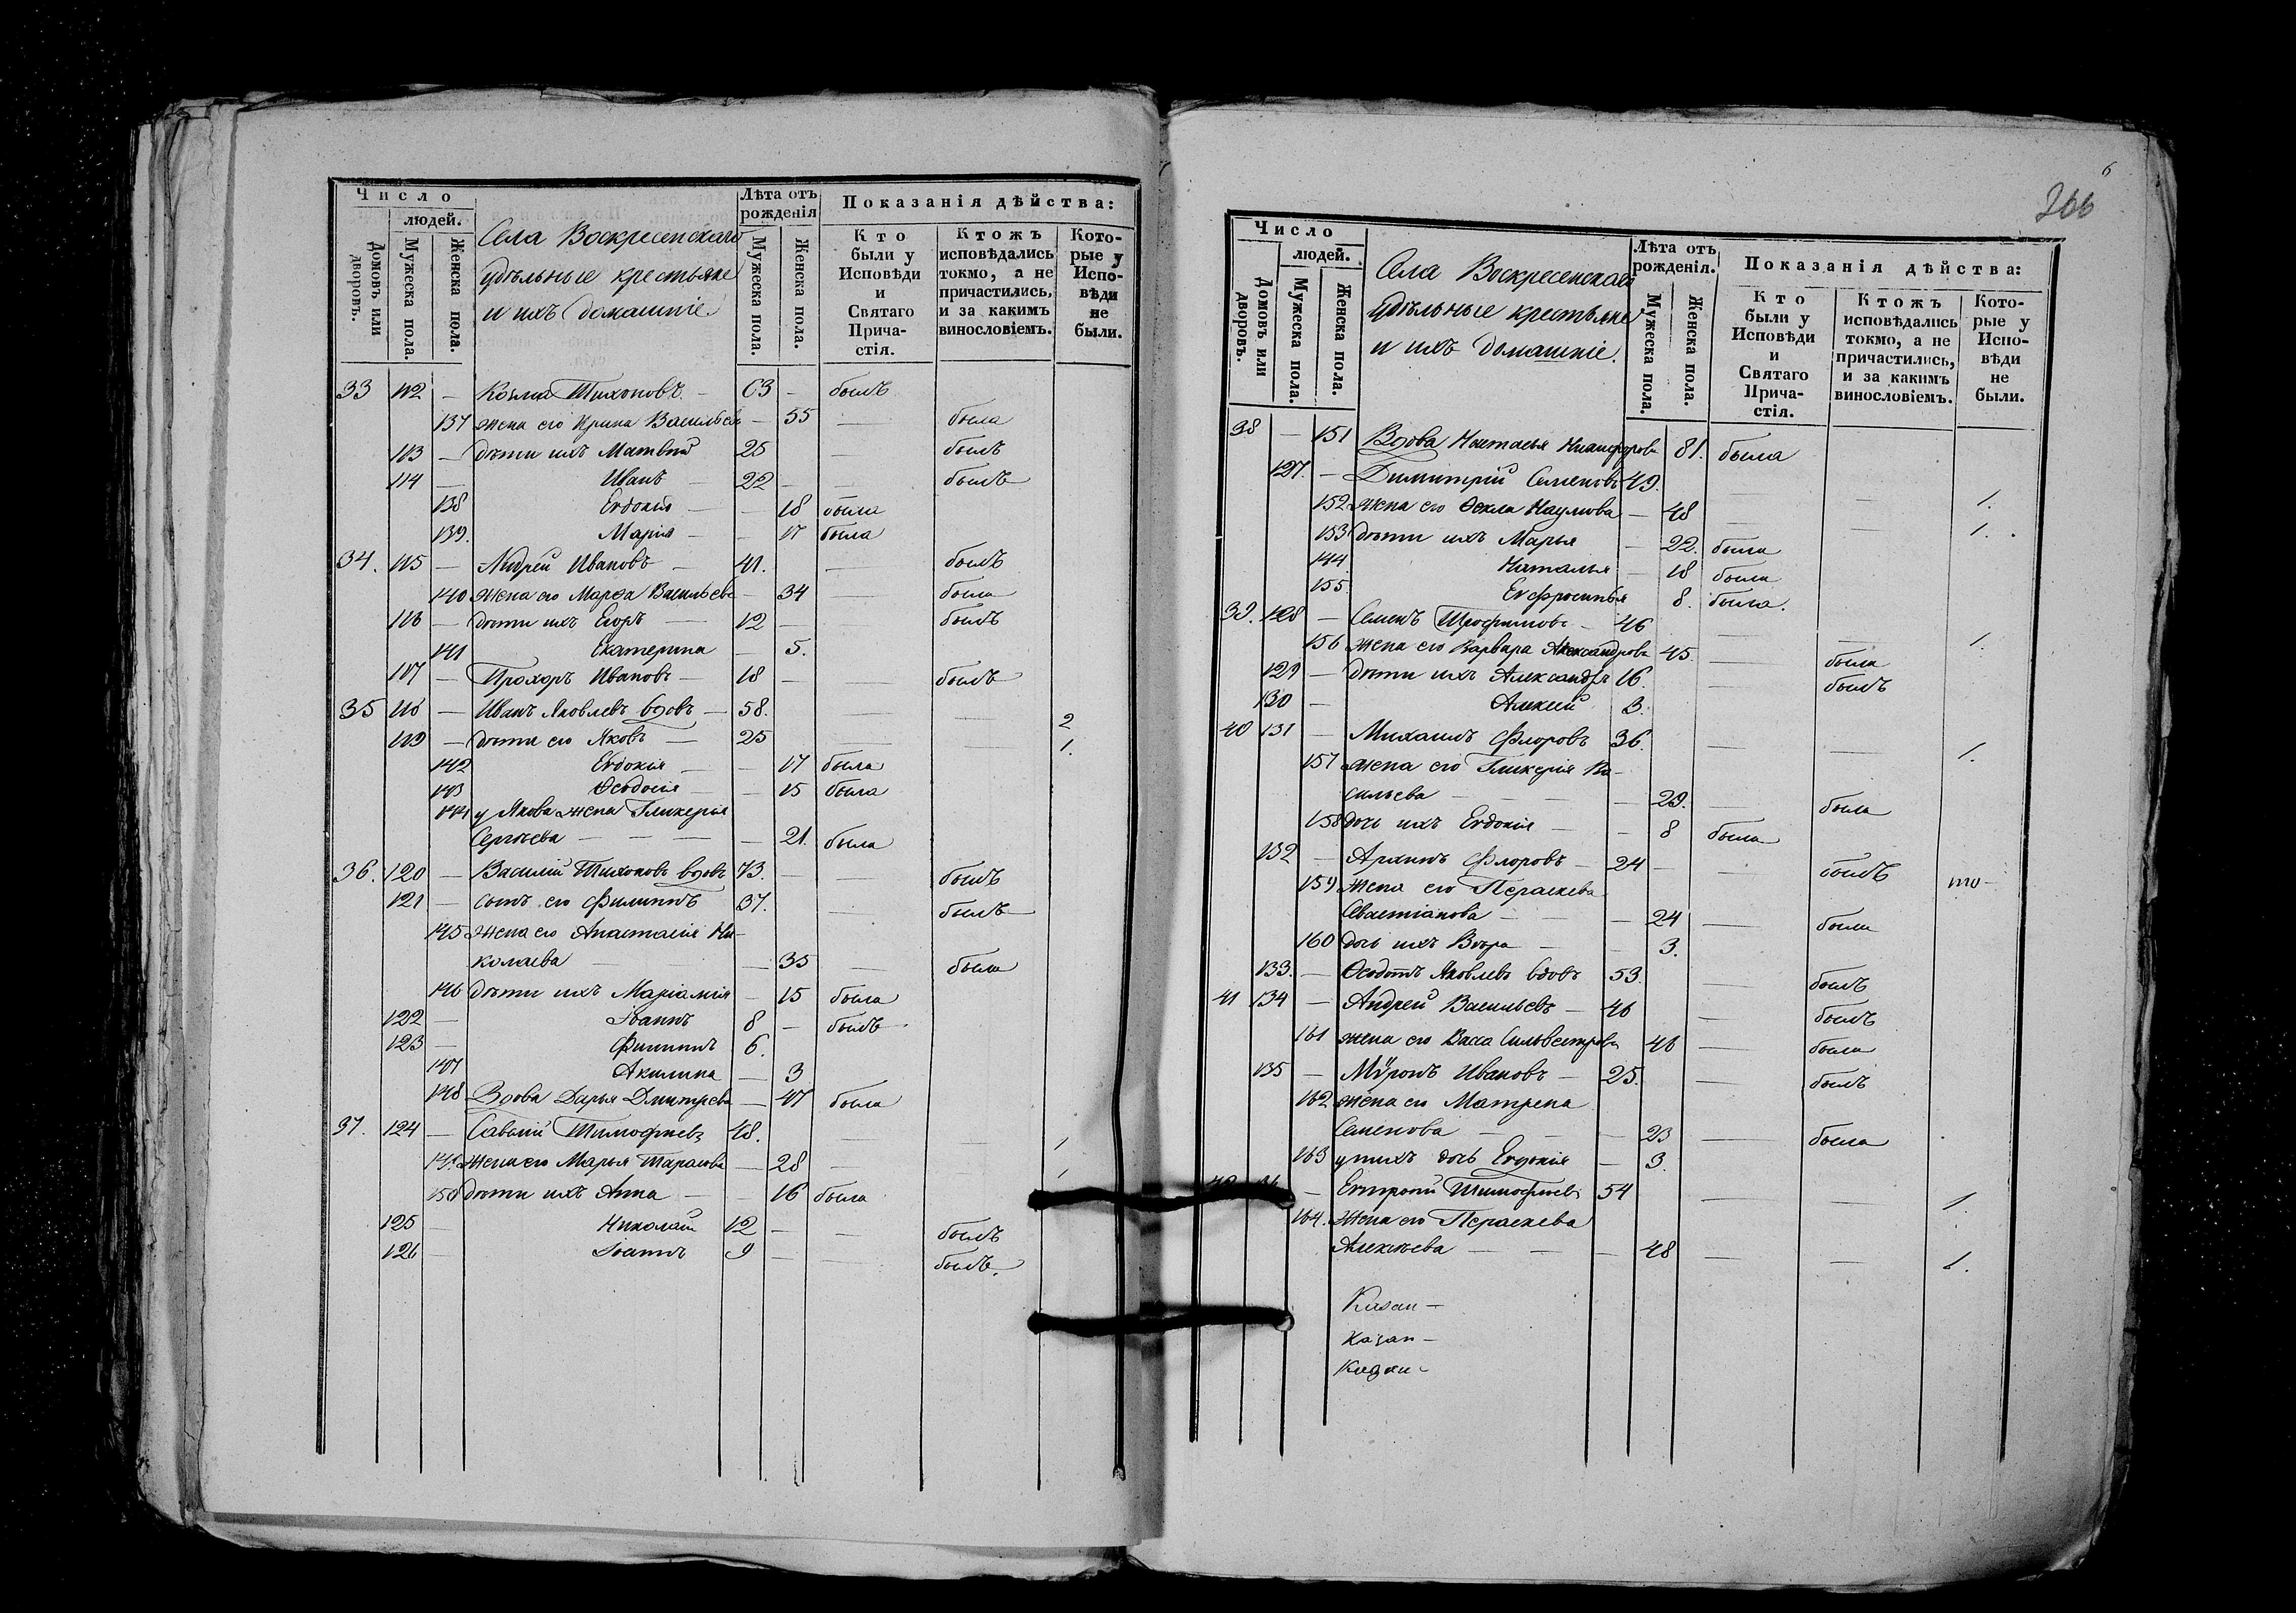 Число
людей.
Домовъ или дворовъ.
Мужеска пола.
Женска пола.
Села Воскресенскаго
удѣльные крестьяне
и ихъ домашніе.
Лѣта отъ рожденія
Мужеска пола.
Женска пола.
Показанія дѣйства:
Кто были у Исповѣди и Святаго Прича-стія.
Ктожъ исповѣдались токмо, а не причастились, и за какимъ винословіемъ.
Кото-рые у Испо-вѣди не были.
33 112 — Козма Тихоновъ — 63 — былъ
137 жена его Ирина Васильева — 55 — была
113 — дѣти ихъ Матвѣй 25 — былъ
114 — Иванъ — 22 — — былъ
138 Евдокія — — 18 была
139. Марія — — 17 была
34. 115 — Андрей Ивановъ — 41. — былъ
140 жена его Марѳа Васильева — 34 — была
116 — дѣти ихъ Егоръ — 12 — — былъ
141 Екатерина — 5.
117 — Прохоръ Ивановъ — 18 — — былъ
35 118 — Иванъ Яковлевъ вдовъ — 58. — — 2
119 — дѣти его Яковъ — 25 — — 1.
142 Евдокія — — 17 была
143 Ѳеодосія — — 15 была
144 у Якова жена Гликерія
Сергѣева — — — — 21. была
36. 120 — Василій Тихоновъ вдовъ 73. — — былъ
121 — сынъ его Филиппъ 37. — былъ
145 жена его Анастасія Ни-
колаева — — 35 — была
146 дѣти ихъ Маріамія — 15 была
122 — Іоаннъ 8 — былъ
123 — Филиппъ 6.
147 Акилина — 3
148 Вдова Дарья Дмитрева — 47 была
37. 124 — Савелій Тимофѣевъ 48. — — 1
149. жена его Марья Тарасова — 28 — 1
150 дѣти ихъ Анна — — 16 была
125 — Николай 12 — — былъ
126 — Іоаннъ 9 — — былъ.
6
266
Число
людей.
Домовъ или дворовъ.
Мужеска пола.
Женска пола.
Села Воскресенскаго
удѣльные крестьяне
и ихъ домашніе.
Лѣта отъ рожденія.
Мужеска пола.
Женска пола.
Показанія дѣйства:
Кто были у Исповѣди и Святаго Прича-стія.
Ктожъ исповѣдались токмо, а не причастились, и за какимъ винословіемъ.
Кото-рые у Испо-вѣди не были.
38 — 151 Вдова Настасья Никифорова 81. была
127. — Димитрій Семеновъ 49. — — 1.
152 жена его Ѳекла Наумова — 48 — — 1.
153 дѣти ихъ Марья — 22. была
144 Наталья — 18 была
155. Евфросинья 8. была.
39. 128 — Семенъ Трофимовъ — 46 — — 1.
156 жена его Варвара Александрова 45. — была
129 — дѣти ихъ Александръ 16. — былъ
130 — Алексій 3.
40 131 — Михаилъ Флоровъ 36. — — 1.
157 жена его Гликерія Ва-
сильева — — — 29. — была
158 дочь ихъ Евдокія — — 8 была
132 — Архипъ Флоровъ — 24 — — былъ
159 жена его Параскева
Севастіанова — — 24 — была
160 дочь ихъ Вѣра — — 3.
133. — Ѳеодотъ Яковлевъ вдовъ 53. — былъ
41 134 — Андрей Васильевъ — 46 — былъ
161 жена его Васса Сильвестрова 46 — была
135 — Мѵронъ Ивановъ — 25. — былъ
162 жена его Матрена
Семенова — — — 23 — была
163 у нихъ дочь Евдокія — 3.
— Евтропій Тимофѣевъ 54 — — 1.
164. жена его Параскева
Алексѣева — — — 48 — — 1.
Казан —
Казан —
Казан —